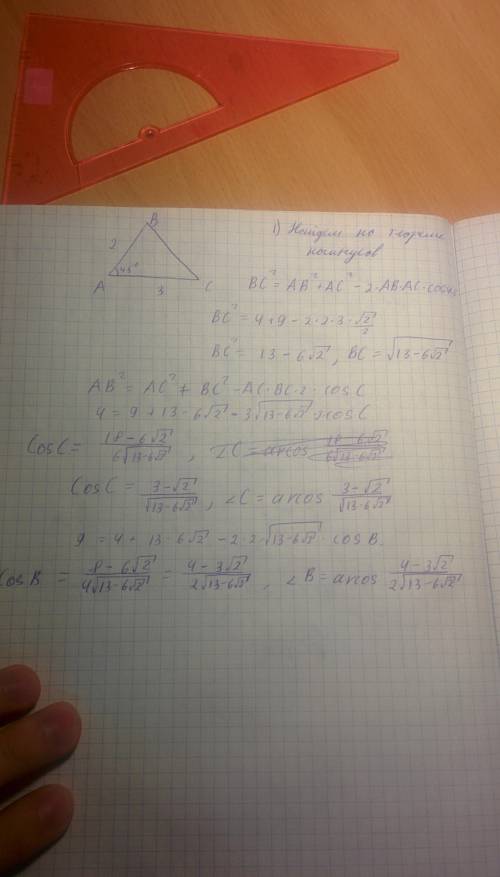 B
2
45°
A 3 C
1) Найдем по теореме
косинусов
BC² = AB² + AC² - 2·AB·AC·cos45
BC² = 4+9 - 2·2·3·√2/2
BC² = 13 - 6√2, BC = √(13-6√2)
AB² = AC² + BC² - AC·BC·2·cos C
4 = 9 + 13 - 6√2 - 3√(13-6√2)·2cosC
CosC = (18-6√2)/(6√(13-6√2)), ∠C = arcos (18-6√2)/(6√(13-6√2))
CosC = (3-√2)/√(13-6√2), ∠C = arcos (3-√2)/√(13-6√2)
9 = 4 + 13 - 6√2 - 2·2·√(13-6√2)·cos B.
CosB = (8-6√2)/(4√(13-6√2)) = (4-3√2)/(2√(13-6√2)), ∠B = arcos (4-3√2)/(2√(13-6√2))